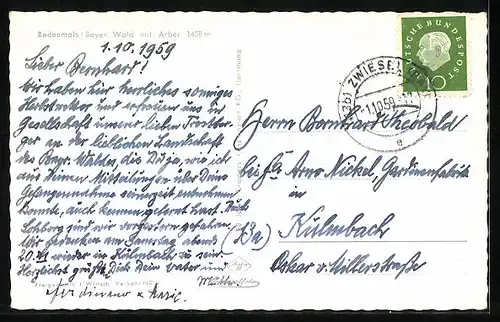 Bodenmais / Bayer. Wald mit Arber 1458 m
1.10.1959
Lieber Bernhard!
Wir haben hier herrliches sonniges
Herbstwetter und erfreuen uns in
Gesellschaft unserer lieben
an der lieblichen Landschaft
des Bayr. Waldes, die Du ja, wie ich
aus Deinen Mitteilungen über Deine
Gefangennahme seinerzeit entnehmen
konnte, auch kennengelernt hast. Nach
sind wir vorgestern gefahren.
Wir gedenken am Samstag abend
wieder in Kulmbach zu sein
Herzlichst grüßt Dich Dein Vater und
DEUTSCHE BUNDESPOST
10
(13b) ZWIESEL
-1.10.59
e
Herrn Bernhard Theobald
bei Fa. Arno Nickel, Gardinenfabrik
in
(13a) Kulmbach
Oskar v. Millerstraße